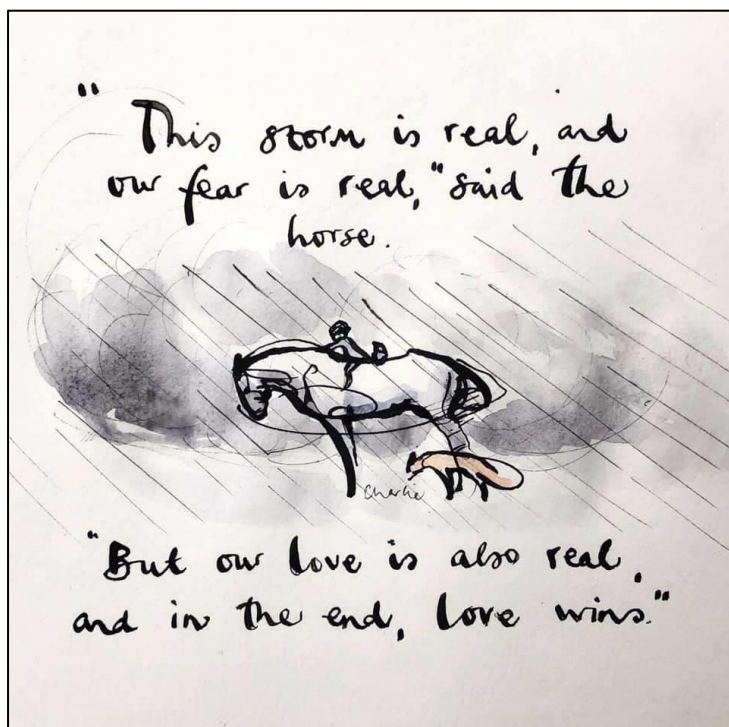 "
This storm is real, and
our fear is real," said the
horse.
Charlie
"But our love is also real,
and in the end, love wins."